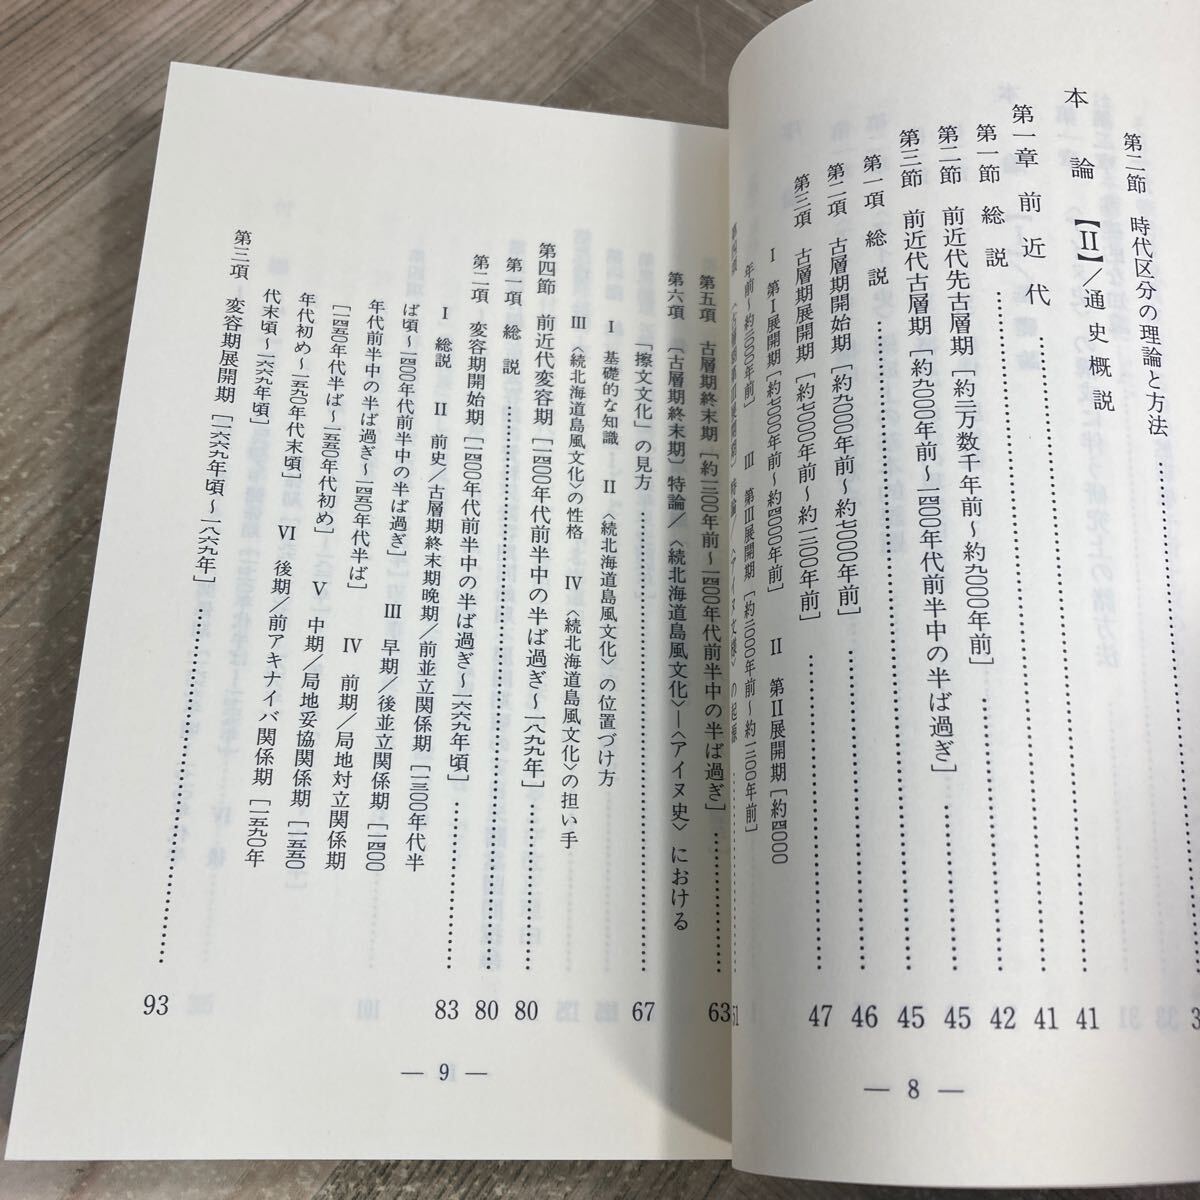 第二節 時代区分の理論と方法……………… 3
本 論 【Ⅱ】／通史概説 41
第一章 前近代……………… 41
第一節 総説……………… 42
第二節 前近代先古層期［約二万数千年前〜約九〇〇〇年前］……………… 45
第三節 前近代古層期［約九〇〇〇年前〜一四〇〇年代前半中の半ば過ぎ］……………… 45
第一項 総説……………… 46
第二項 古層期開始期［約九〇〇〇年前〜約七〇〇〇年前］……………… 47
第三項 古層期展開期［約七〇〇〇年前〜約一二〇〇年前］
Ⅰ 第Ⅰ展開期［約七〇〇〇年前〜約四〇〇〇年前］ Ⅱ 第Ⅱ展開期［約四〇〇〇
年前〜約二〇〇〇年前］ Ⅲ 第Ⅲ展開期［約二〇〇〇年前〜約一二〇〇年前］
特論／〈アイヌ文様〉の起源……………… 51
— 8 —
第五項 古層期終末期［約一二〇〇年前〜一四〇〇年代前半中の半ば過ぎ］……………… 63
第六項 ［古層期終末期］特論／〈続北海道島風文化〉—〈アイヌ史〉における
「擦文文化」の見方……………… 67
Ⅰ 基礎的な知識 Ⅱ 〈続北海道島風文化〉の位置づけ方
Ⅲ 〈続北海道島風文化〉の性格 Ⅳ 〈続北海道島風文化〉の担い手
第四節 前近代変容期［一四〇〇年代前半中の半ば過ぎ〜一八九九年］……………… 80
第一項 総説……………… 80
第二項 変容期開始期［一四〇〇年代前半中の半ば過ぎ〜一六六九年頃］……………… 83
Ⅰ 総説 Ⅱ 前史／古層期終末期晩期／前並立関係期［一三〇〇年代半
ば頃〜一四〇〇年代前半中の半ば過ぎ］ Ⅲ 早期／後並立関係期［一四〇〇
年代前半中の半ば過ぎ〜一四五〇年代半ば］ Ⅳ 前期／局地対立関係期
［一四五〇年代半ば〜一五五〇年代初め］ Ⅴ 中期／局地妥協関係期［一五五〇
年代初め〜一五九〇年代末頃］ Ⅵ 後期／前アキナイバ関係期［一五九〇年
代末頃〜一六六九年頃］
第三項 変容期展開期［一六六九年頃〜一八六九年］……………… 93
— 9 —